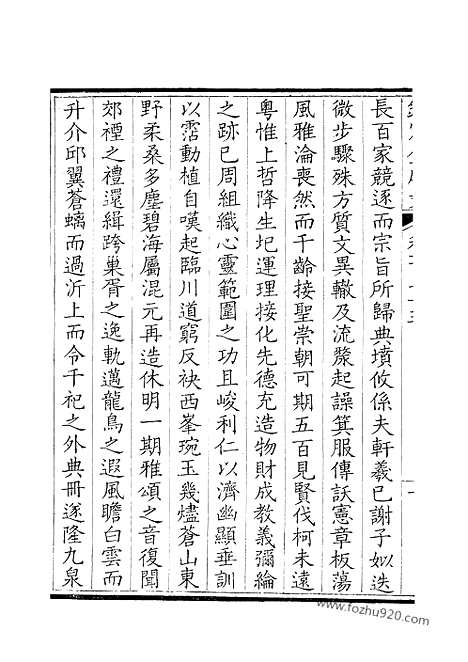 長百家競逐而宗旨所歸典墳攸係夫軒羲已謝子姒迭
微步驟殊方質文異轍及流漦起譟箕服傳訞憲章板蕩
風雅淪喪然而千齡接聖崇朝可期五百見賢伐柯未遠
粵惟上哲降生圯運理接化先德充造物財成教義彌綸
之跡已周組織心靈範圍之功且峻利仁以濟幽顯垂訓
以霑動植自嘆起臨川道窮反袂西峯琬玉幾燼蒼山東
野柔桑多塵碧海屬混元再造休明一期雅頌之音復聞
郊禋之禮還緝跨巢胥之逸軌邁龍鳥之遐風瞻白雲而
升介邱翼蒼螭而過沂上而令千祀之外典冊遂隆九泉
www.fozhu920.com